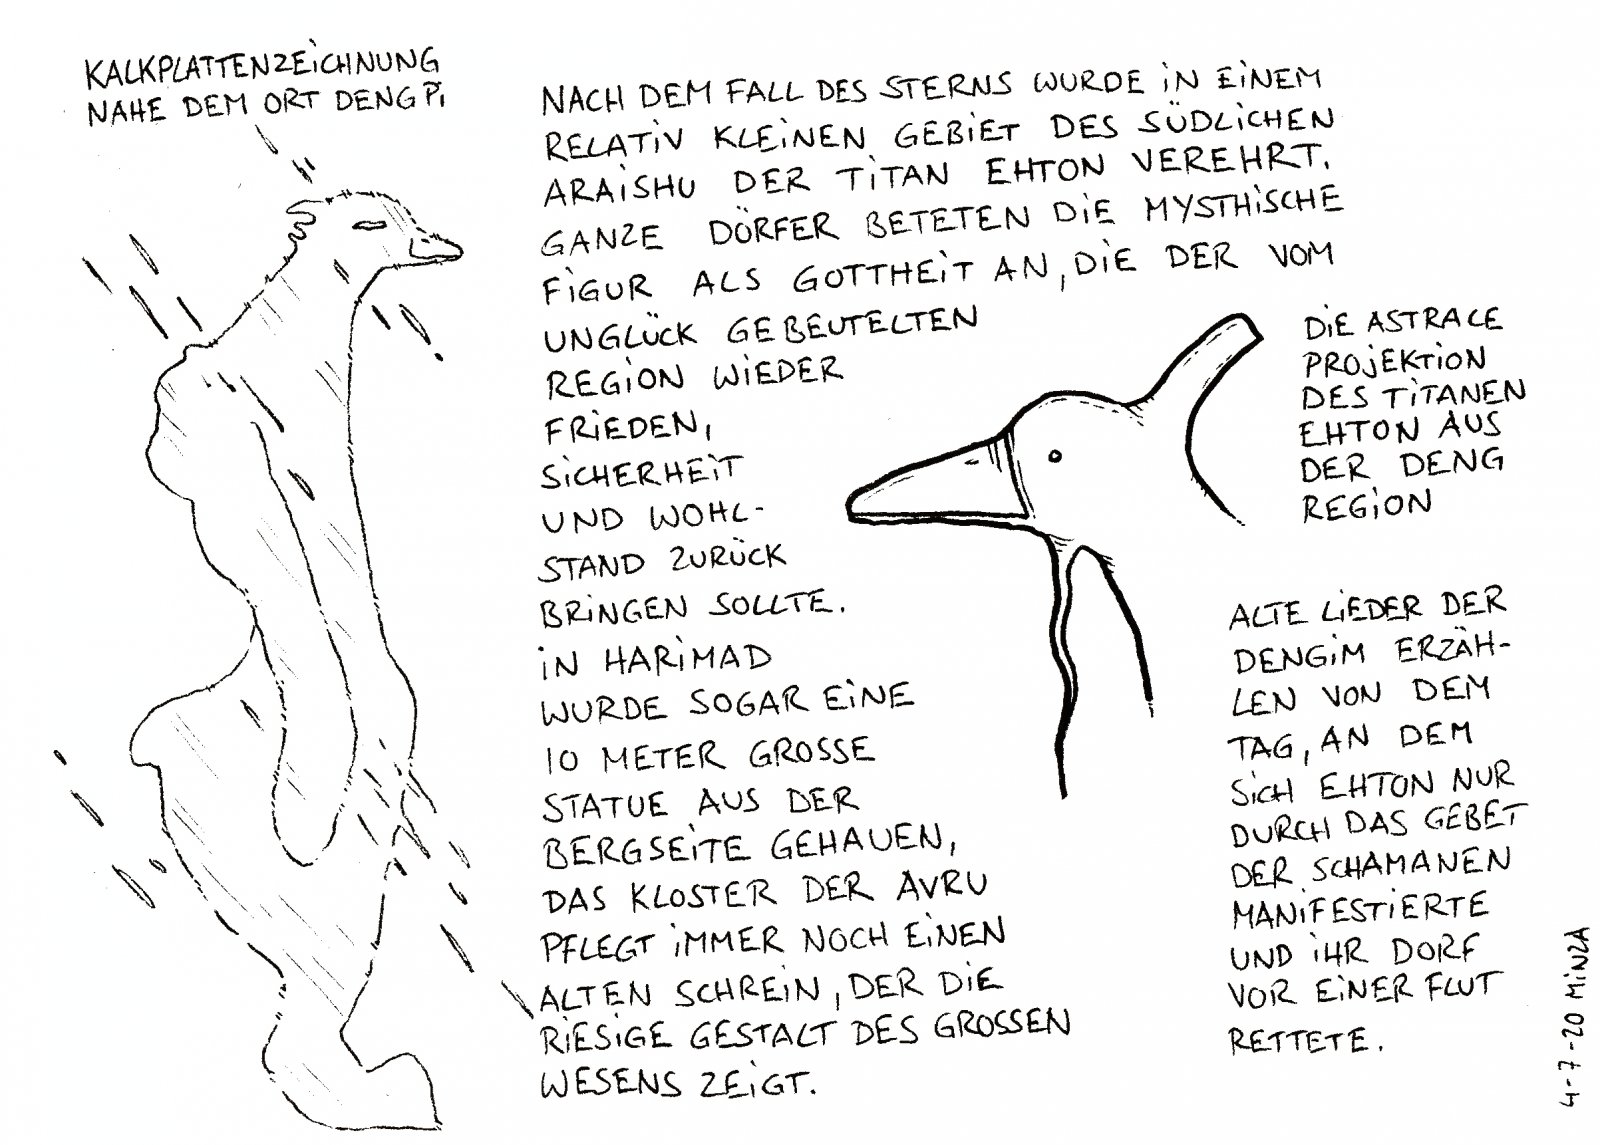 KALKPLATTENZEICHNUNG
NAHE DEM ORT DENGPI
NACH DEM FALL DES STERNS WURDE IN EINEM
RELATIV KLEINEN GEBIET DES SÜDLICHEN
ARAISHU DER TITAN EHTON VEREHRT.
GANZE DÖRFER BETETEN DIE MYSTHISCHE
FIGUR ALS GOTTHEIT AN, DIE DER VOM
UNGLÜCK GEBEUTELTEN
REGION WIEDER
FRIEDEN,
SICHERHEIT
UND WOHL-
STAND ZURÜCK
BRINGEN SOLLTE.
IN HARIMAD
WURDE SOGAR EINE
10 METER GROSSE
STATUE AUS DER
BERGSEITE GEHAUEN,
DAS KLOSTER DER AVRU
PFLEGT IMMER NOCH EINEN
ALTEN SCHREIN, DER DIE
RIESIGE GESTALT DES GROSSEN
WESENS ZEIGT.
DIE ASTRALE
PROJEKTION
DES TITANEN
EHTON AUS
DER DENG
REGION
ALTE LIEDER DER
DENGIM ERZÄH-
LEN VON DEM
TAG, AN DEM
SICH EHTON NUR
DURCH DAS GEBET
DER SCHAMANEN
MANIFESTIERTE
UND IHR DORF
VOR EINER FLUT
RETTETE.
4-7-20 MINZA